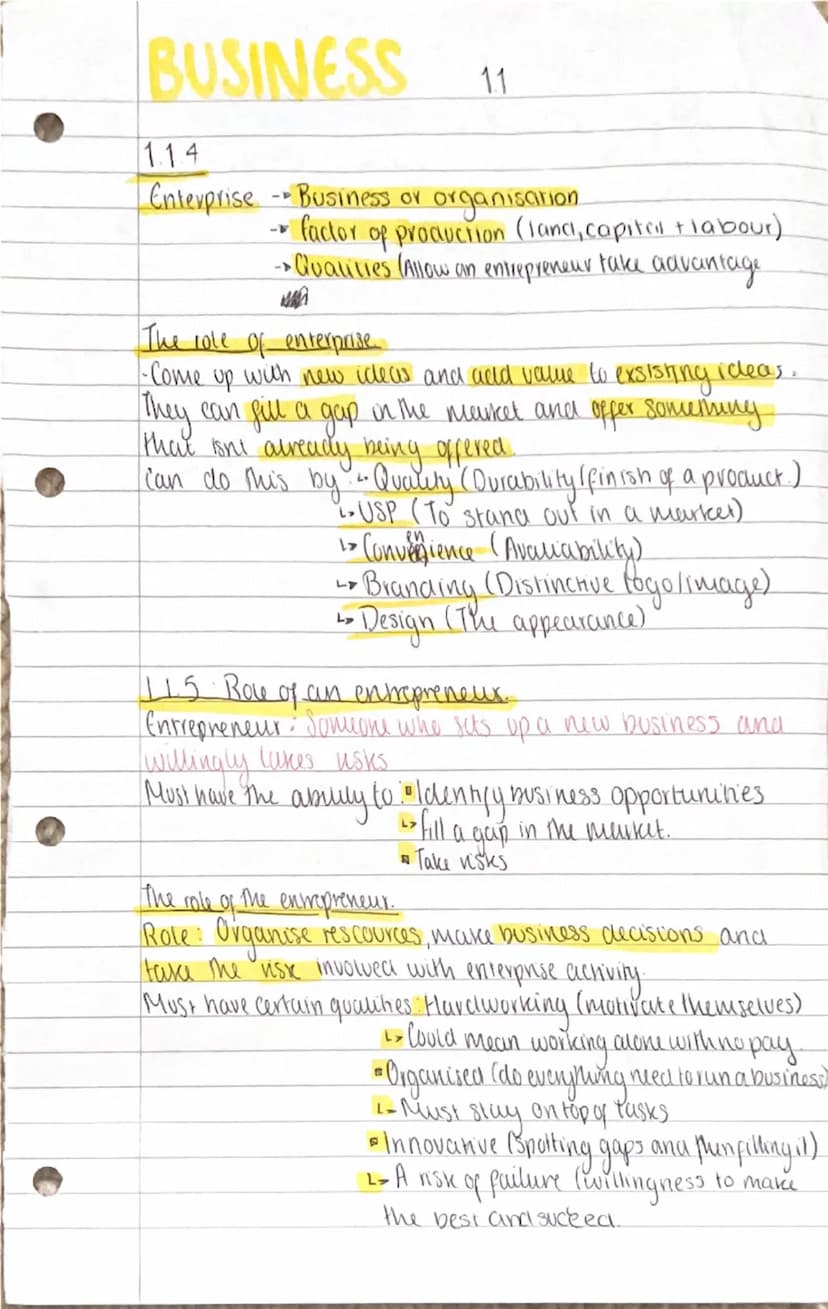 BUSINESS 1.1
1.1.4
Enterprise → Business or organisation
→ factor of production (land, capital + labour)
→ Qualities (Allow an entrepreneur take advantage
The role of enterprise
-Come up with new ideas and add value to exsisting ideas.
They can fill a gap in the market and offer something
that isnt already being offered.
Can do this by: ↳ Quality (Durability/finish of a product.)
↳ USP (To stand out in a market)
↳ Convenience (Avaliability)
↳ Branding (Distinctive logo/image)
↳ Design (The appearance)
1.1.5 Role of an entrepreneur.
Entrepreneur: Someone who sets up a new business and
willingly takes risks
Must have the ability to: Identify business opportunities
↳ fill a gap in the market.
Take risks
The role of the entrepreneur.
Role: Organise rescources, make business decisions and
take the risk involved with enterprise activity.
Must have certain qualities: Hardworking (motivate themselves)
↳ Could mean working alone with no pay
Organised (do everything need to run a business)
↳ Must stay on top of tasks
Innovative (Spotting gaps and then filling it)
↳ A risk of failure (willingness to make
the best and succeed.